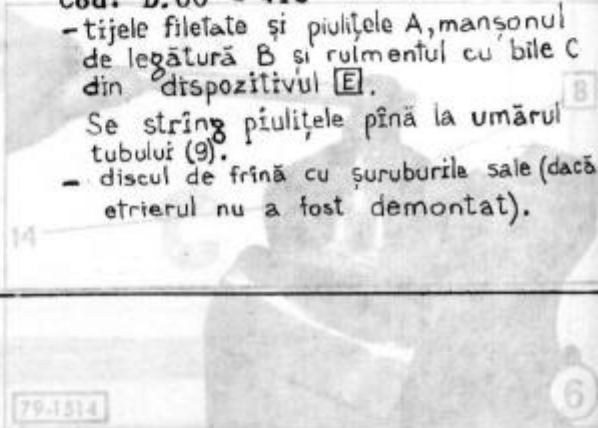 - tijele filetate și piulițele A, manșonul
de legătură B și rulmentul cu bile C
din dispozitivul E.
Se strîng piulițele pînă la umărul
tubului (9).
- discul de frînă cu șuruburile sale (dacă
etrierul nu a fost demontat).
B
14
79-1514
6